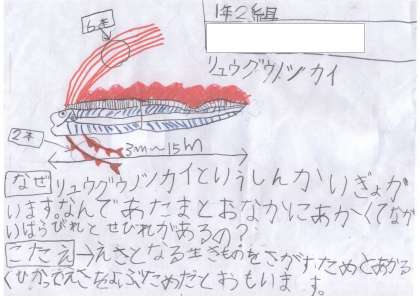 6本
1年2組
リュウグウノツカイ
2本
3m〜15m
なぜ リュウグウノツカイというしんかいぎょが
います。なんであたまとおなかにあかくてなが
いはらびれとせびれがあるの?
こたえ→えさとなる生きものをさがすためとあかる
くひかってえさをよぶためだとおもいます。